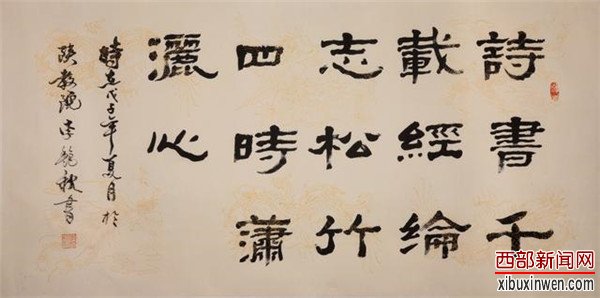 詩書千
載經綸
志松竹
四時瀟
灑心
時在戊子年夏月於
陝教院李秋書
西部新闻网
xibuxinwen.com